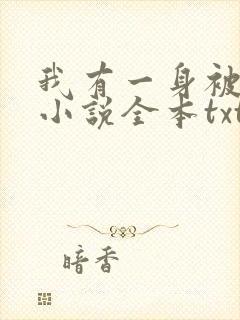 我有一身被
小说全本txt
暗香